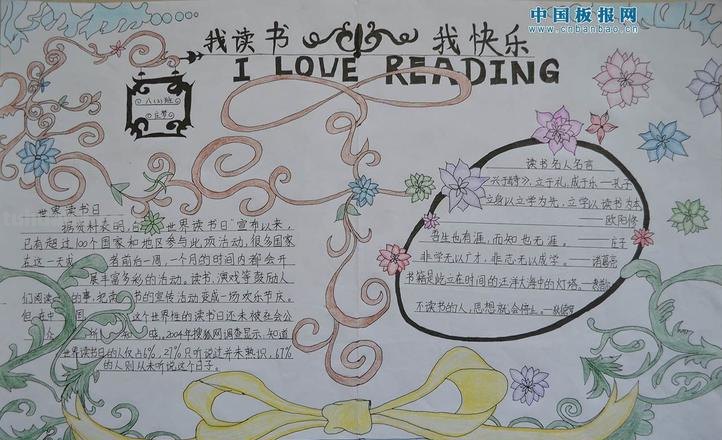 中国板报网
www.cnbanbao.cn
我读书 我快乐
I LOVE READING
八(3)班
世界读书日
据资料表明，自“世界读书日”宣布以来，
已有超过100个国家和地区参与此项活动，很多国家
在这一天或者前后一周、一个月的时间内都会开
展丰富多彩的活动。读书、演戏等鼓励人
们阅读的事，把读书节的宣传活动变成一场欢乐节庆。
但在中国，这个世界性的读书日还未被社会公
众所知晓，2004年搜狐网调查显示，知道
世界读书日的人仅占6%，27%只听说过并未熟识，67%
的人则从未听说这个日子。
读书名人名言
兴于诗，立于礼，成于乐——孔子
立身以立学为先，立学以读书为本
——欧阳修
吾生也有涯，而知也无涯。——庄子
非学无以广才，非志无以成学。——诸葛亮
书籍是屹立在时间的汪洋大海中的灯塔。
不读书的人，思想就会停止。